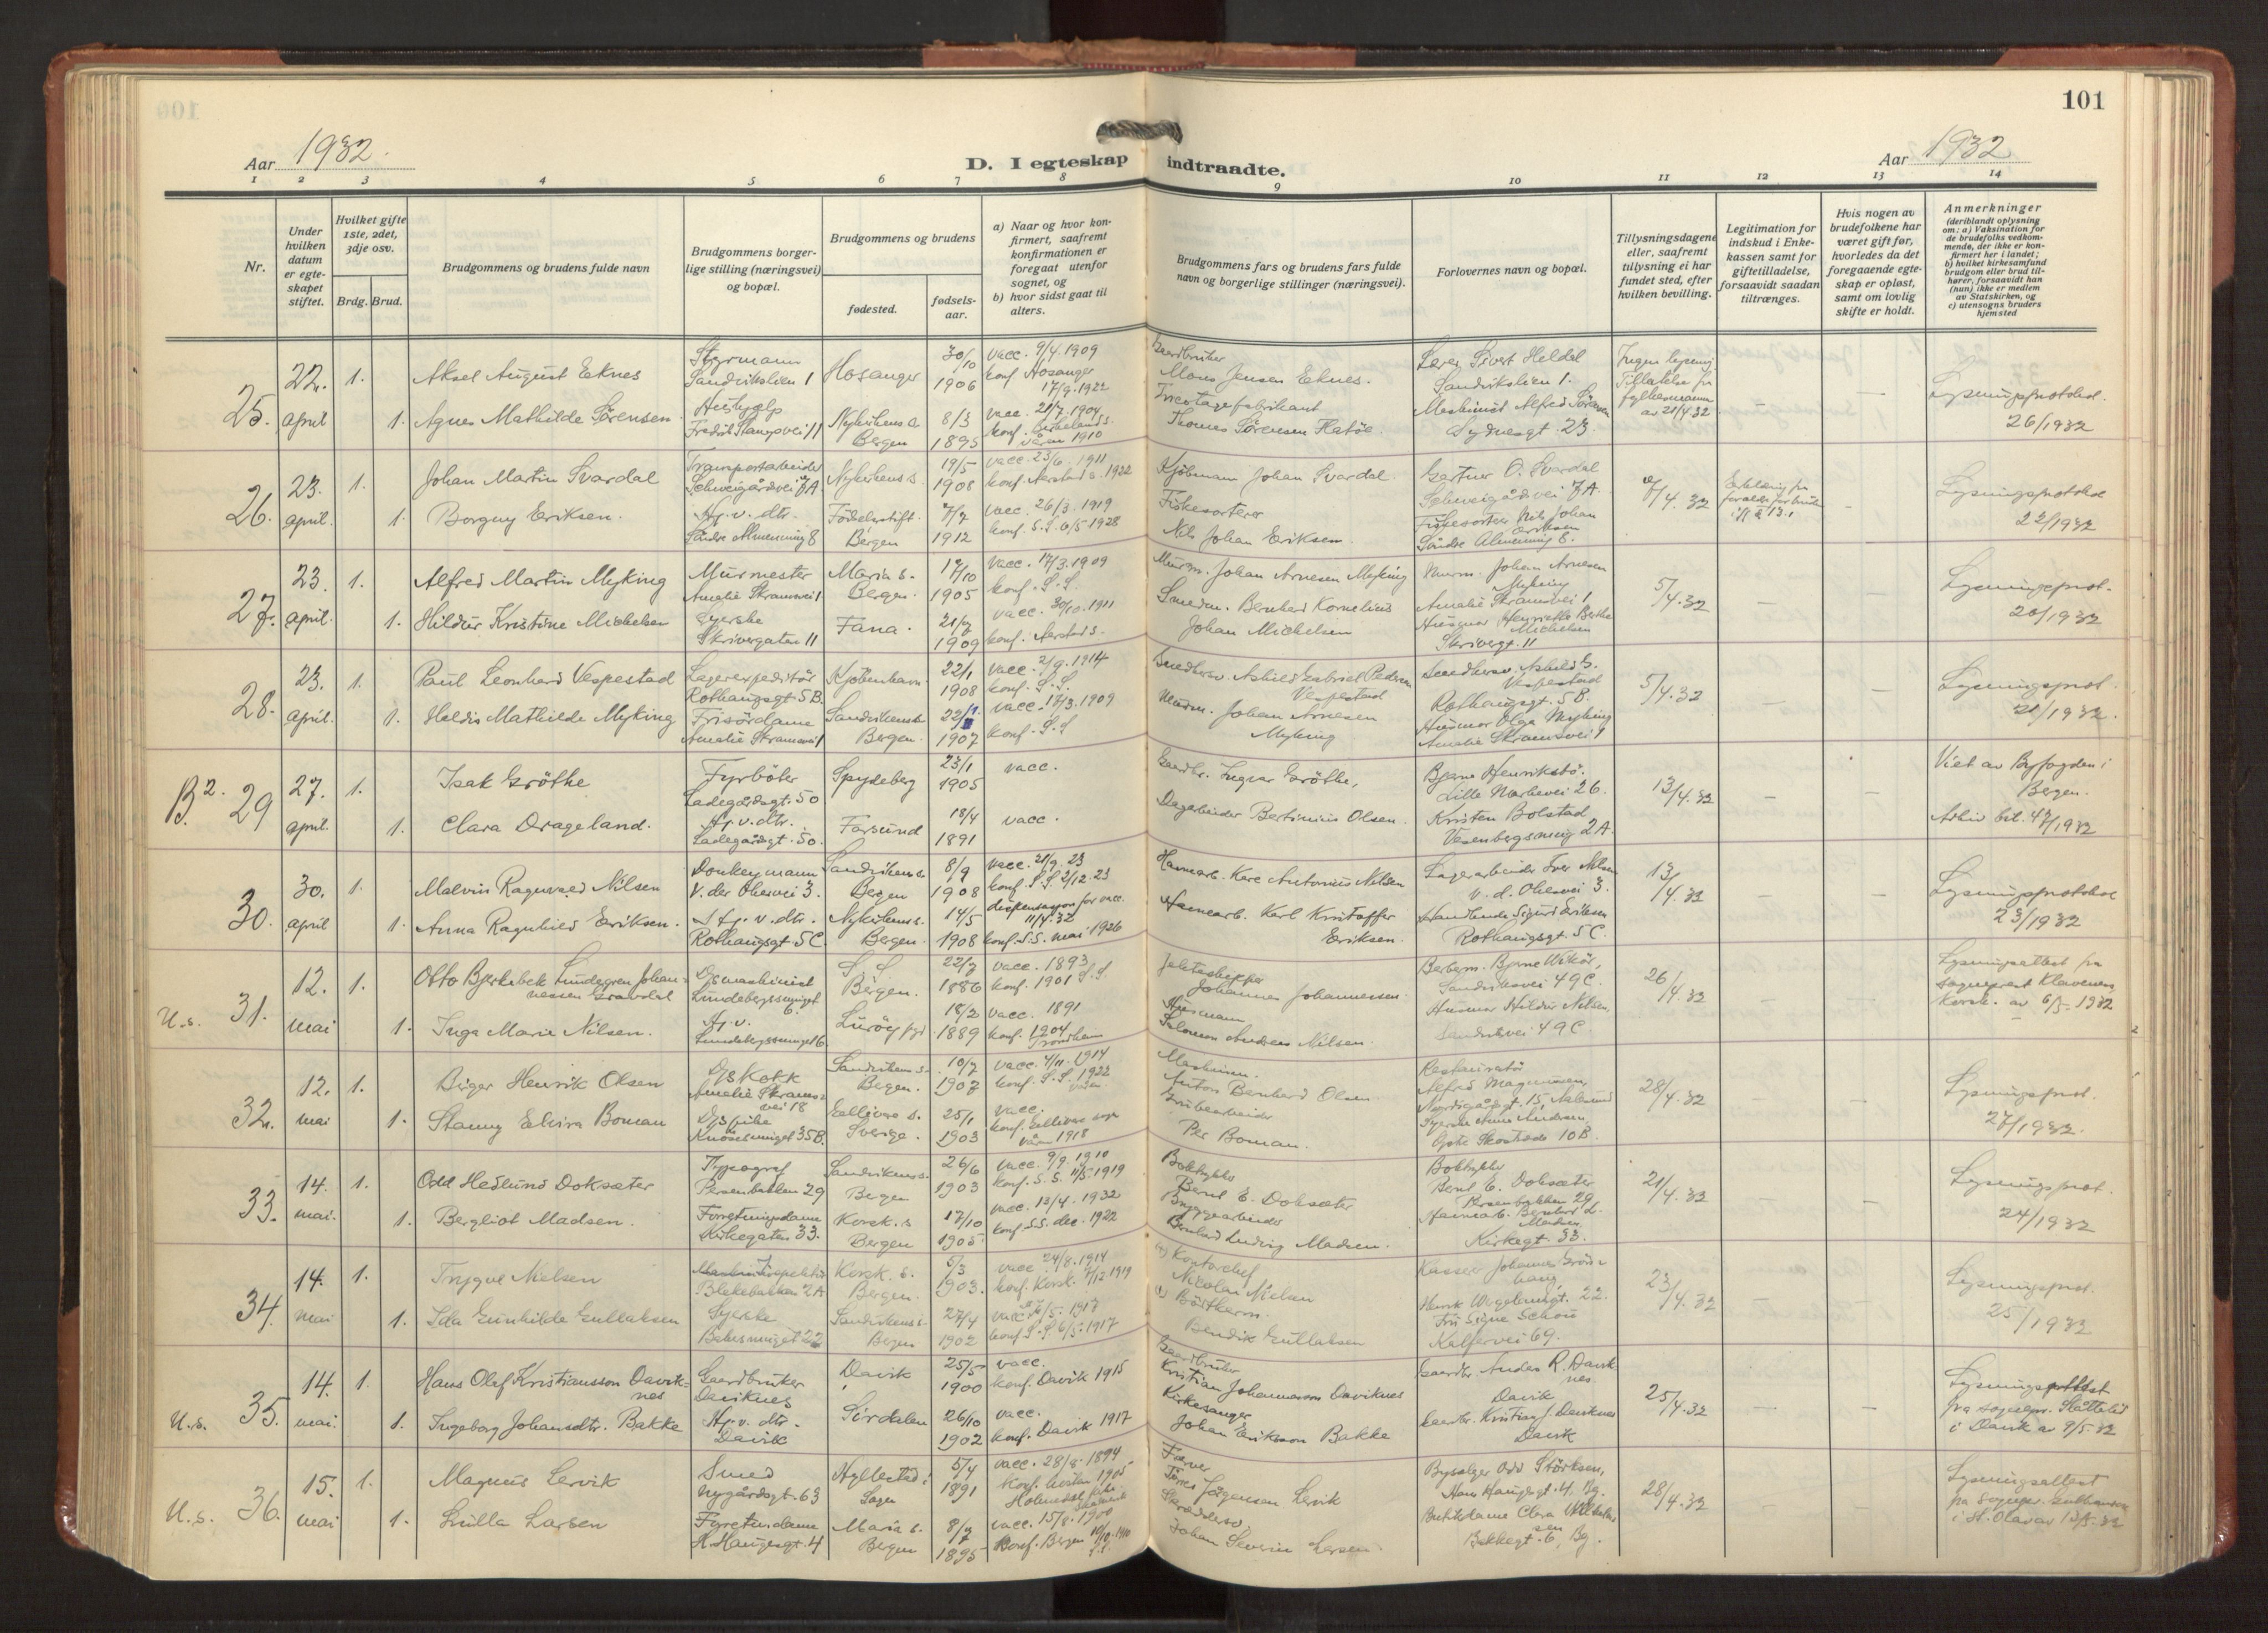 101
Aar 1932.
D. I egteskap indtraadte.
Aar 1932
1 2 3 4 5 6 7 8 9 10 11 12 13 14
Nr.
Under hvilken datum er egte-skapet stiftet.
Hvilket gifte 1ste, 2det, 3dje osv.
Brdg. Brud.
Brudgommens og brudens fulde navn
Brudgommens borger-lige stilling (næringsvei) og bopæl.
Brudgommens og brudens
fødested.
fødsels-aar.
a) Naar og hvor kon-firmert, saafremt konfirmationen er foregaat utenfor sognet, og
b) hvor sidst gaat til alters.
Brudgommens fars og brudens fars fulde navn og borgerlige stillinger (næringsvei).
Forlovernes navn og bopæl.
Tillysningsdagene eller, saafremt tillysning ei har fundet sted, efter hvilken bevilling.
Legitimation for indskud i Enke-kassen samt for giftetilladelse, forsaavidt saadan tiltrænges.
Hvis nogen av brudefolkene har været gift før, hvorledes da det foregaaende egte-skap er opløst, samt om lovlig skifte er holdt.
Anmerkninger
(deriblandt oplysning om: a) Vaksination for de brudefolks vedkom-mende, der ikke er kon-firmert her i landet; b) hvilket kirkesamfund brudgom eller brud til-hører, forsaavidt han (hun) ikke er medlem av Statskirken, og c) utensogns bruders hjemsted
25. 22. april 1. Aksel August Eknes Styrmann Sandviksleien 1 Hosanger 30/10 1906 vacc. 9/4. 1909 konf Hosanger 17/9. 1922
Gaardbruker Mons Jensen Eknes. Sivert Heldal Sandviksleien 1. Ingen lysning Tillatelse fra fylkesmannen av 21/4 32 – Lysningsprotokol. 26/1932
1. Agnes Mathilde Sørensen. Hushjælp Fredrik Stangsvei 11 Nykirkens s. Bergen 8/3 1895 vacc. 21/7. 1904 konf. våren 1910
Tricotagefabrikant Thomas Sørensen Flatöe Maskinist Alfred Sörensen Sydnesgt. 23.
26. 23. april. 1. Johan Martin Svardal Transportarbeider Schweigårdsvei 7A Nykirkens s. 19/5 1908 vacc. 23/6. 1911 konf. Aarstad s. 1922
Kjöbmann Johan Svardal. Gartner O. Svardal Schweigårdsvei 7A. 7/4. 32 Erklæring fra – Lysningsprotokol 22/1932
1. Borgny Eriksen. Hj. v. dtr. Söndre Almenning 8 Födselsstift. Bergen 7/7 1912 vacc. 26/3. 1919 konf. S.S. 6/5 1928
Fiskesorterer Nils Johan Eriksen. Fiskesorterer Nils Johan Eriksen Söndre Almenning 8.
27. 23. april. 1. Alfred Martin Myking Murmester Amalie Skramsvei 1 Maria s. Bergen. 17/10 1905 vacc. 17/3. 1909 konf. S.S.
Murm. Johan Arnesen Myking Murm. Johan Arnesen Myking Amalie Skramsvei 1 5/4. 32 – – Lysningsprot. 20/1932
1. Hildur Kristine Michelsen Syerske Skrivergaten 11 Fana. 21/7 1909 vacc. 30/10. 1911 konf. Aarstad s.
Smedm. Bernhard Kornelius Johan Michelsen Husmor Henriette Berthe Michelsen Skrivergt. 11
28. 23. april. 1. Paul Leonhard Vespestad Lagerexpeditör Rothaugsgt. 5 B. Kjöbenhavn. 22/1 1908 vacc. 2/9. 1914 konf. S.S.
Gabriel Pedersen Vespestad Vespestad Rothaugsgt. 5 B. 5/4. 32 – – Lysningsprot 21/1932.
1. Heldis Mathilde Myking Frisördame Amalie Skramsvei 1 Sandvikens s. Bergen. 22/ 1907 vacc. 17/3. 1909 konf. S.S
Murm. Johan Arnesen Myking Husmor Olga Myking Amalie Skramsvei 1
B2. 29 27. april. 1. Isak Gröthe Fyrböter Ladegårdsgt. 50 Spydeberg 23/1 1905 vacc.
Gaardbr. Ingvar Gröthe, Bjarne Henriksbö. Lille Markevei 26. 13/4. 32 – – Viet av Byfogden i Bergen.
1. Clara Drageland. Hj. v. dtr. Ladegårdsgt. 50. Farsund 18/4 1891 vacc.
Dagarbeider Bertinius Olsen. Kristen Bolstad Vesenbergsmug 2 A. Arkiv bil. 47/1932
30. 30. april 1. Malvin Ragnvald Nilsen Donkeymann V. der Ohesvei 3. Sandvikens s. Bergen 8/9 1908 vacc. 21/9. 23 konf. S.S 2/12. 23
Havnearb. Kare Antonius Nilsen Lagerarbeider Iver Nilsen v. d. Ohesvei 3. 13/4. 32 – – Lysningsprotokol 23/1932
1. Anna Ragnhild Eriksen. Hj. v. dtr. Rothaugsgt. 5 C. Nykirkens s. Bergen. 14/5 1908 dispensasjon for vacc. 11/4. 32 konf. S.S. mai 1926
Havnearb. Karl Kristoffer Eriksen. Sigurd Eriksen Rothaugsgt. 5 C.
U.s. 31. 12. mai 1. Otto Bjerkebek Lundegren Johannessen Gravdal Dsmaskinist Lundebergssmuget 6. S.S. Bergen. 22/7 1886 vacc. 1893 konf. 1901 S.S.
Jekteskipper Johannes Johannessen. Bjarne Wikör, Sandviksvei 49 C. 26/4. 32 – – Lysningsattest fra sogneprest Klaveness Korsk. av 6/5. 1932
1. Inga Marie Nilsen. Hj. v. Lundebergssmuget 6 Luröy pgd 18/2 1889 vacc. 1891 konf. 1904 Trondheim
Husmann Salomon Andreas Nilsen. Husmor Hildur Nilsen, Sandviksvei 49 C
32. 12. mai 1. Birger Henrik Olsen Dskokk Amalie Skramsvei 18 Sandvikens s. Bergen. 10/7 1907 vacc. 4/11. 1914 konf. S.S. 1922 våren.
Maskinm. Anton Bernhard Olsen. Restauratör Alfred Magnussen, 15, Aalesund 28/4. 32 – – Lysningsprot. 27/1932.
1. Stanny Elvira Boman Dspike Knösesmuget 35 B. Gellivare s. Sverige. 25/1 1903 vacc. konf. Gellivare sogn våren 1918
Grubearbeider Per Boman. Syerske Anna Andersen, 10 B.
33. 14. mai. 1. Odd Hedlund Doksæter Typograf Persenbakken 29 Sandvikens s. Bergen 26/6 1903 vacc. 9/9. 1910 konf. S.S. 11/5. 1919
Boktrykker Bernt E. Doksæter Boktrykker Bernt E. Doksæter Persenbakken 29. 21/4. 32 – – Lysningsprot. 24/1932
1. Bergliot Madsen. Forretningsdame Kirkegaten 33. Korsk. s. Bergen 17/10 1905. vacc. 13/4. 1932 konf. S.S. dec. 1922
Bryggearbeider Bernhard Ludvig Madsen. Havnearb. Bernhard L. Madsen Kirkegt. 33.
34. 14. mai 1. Trygve Nielsen Blekebakken 2 A Korsk. s. Bergen. 5/3 1903. vacc. 24/8. 1914 konf. Korsk. 7/12 1919
Kontorchef Nicolai Nielsen Kasserer Johannes Henrik Wergelandsgt. 22. 23/4. 32 – – Lysningsprot. 25/1932
1. Ida Gunhilde Gullaksen Syerske Bakesmuget 22 Sandvikens s. Bergen 27/4 1902 vacc. /5. 1917 konf. S.S 6/5. 1917
Bendik Gullaksen Fru Signe Schou Kalfarvei 69.
U.s. 35. 14. mai 1. Hans Olaf Kristiansson Daviknes Gaardbruker Daviknes Davik 25/5 1900 vacc. konf. Davik 1915
Gaardbruker Kristian Johannesson Daviknes Gaardbr. Anders R. Daviknes. Davik 25/4. 32 – – Lysningsattest fra sognepr. i Davik av 9/5. 32
1. Ingeborg Johansdtr. Bakke Hj. v. dtr. Davik Sirdalen 26/10 1902 vacc. konf. Davik 1917
Kirkesanger Johan Eriksson Bakke Gaardbr. Kristian J. Daviknes Davik
U.s. 36. 15. mai 1. Magnus Lervik Smed Nygårdsgt. 63 Hyllestad i Sogn 5/4 1891 vacc. 28/8. 1894 konf. hösten 1905
Jörgensen Lervik Bysælger Odd Störksen, Hans Haugesgt. 4. Bg. 28/4. 32 – – Lysningsattest fra sognepr. i St. Olav av
1. Lulla Larsen Forretn.dame H. Haugesgt. 4 Maria s. Bergen 8/7 1895 vacc. 15/8. 1900 konf. Bergen 1910
Johan Severin Larsen. Butikdame Clara Bakkegt. 6, Bg.